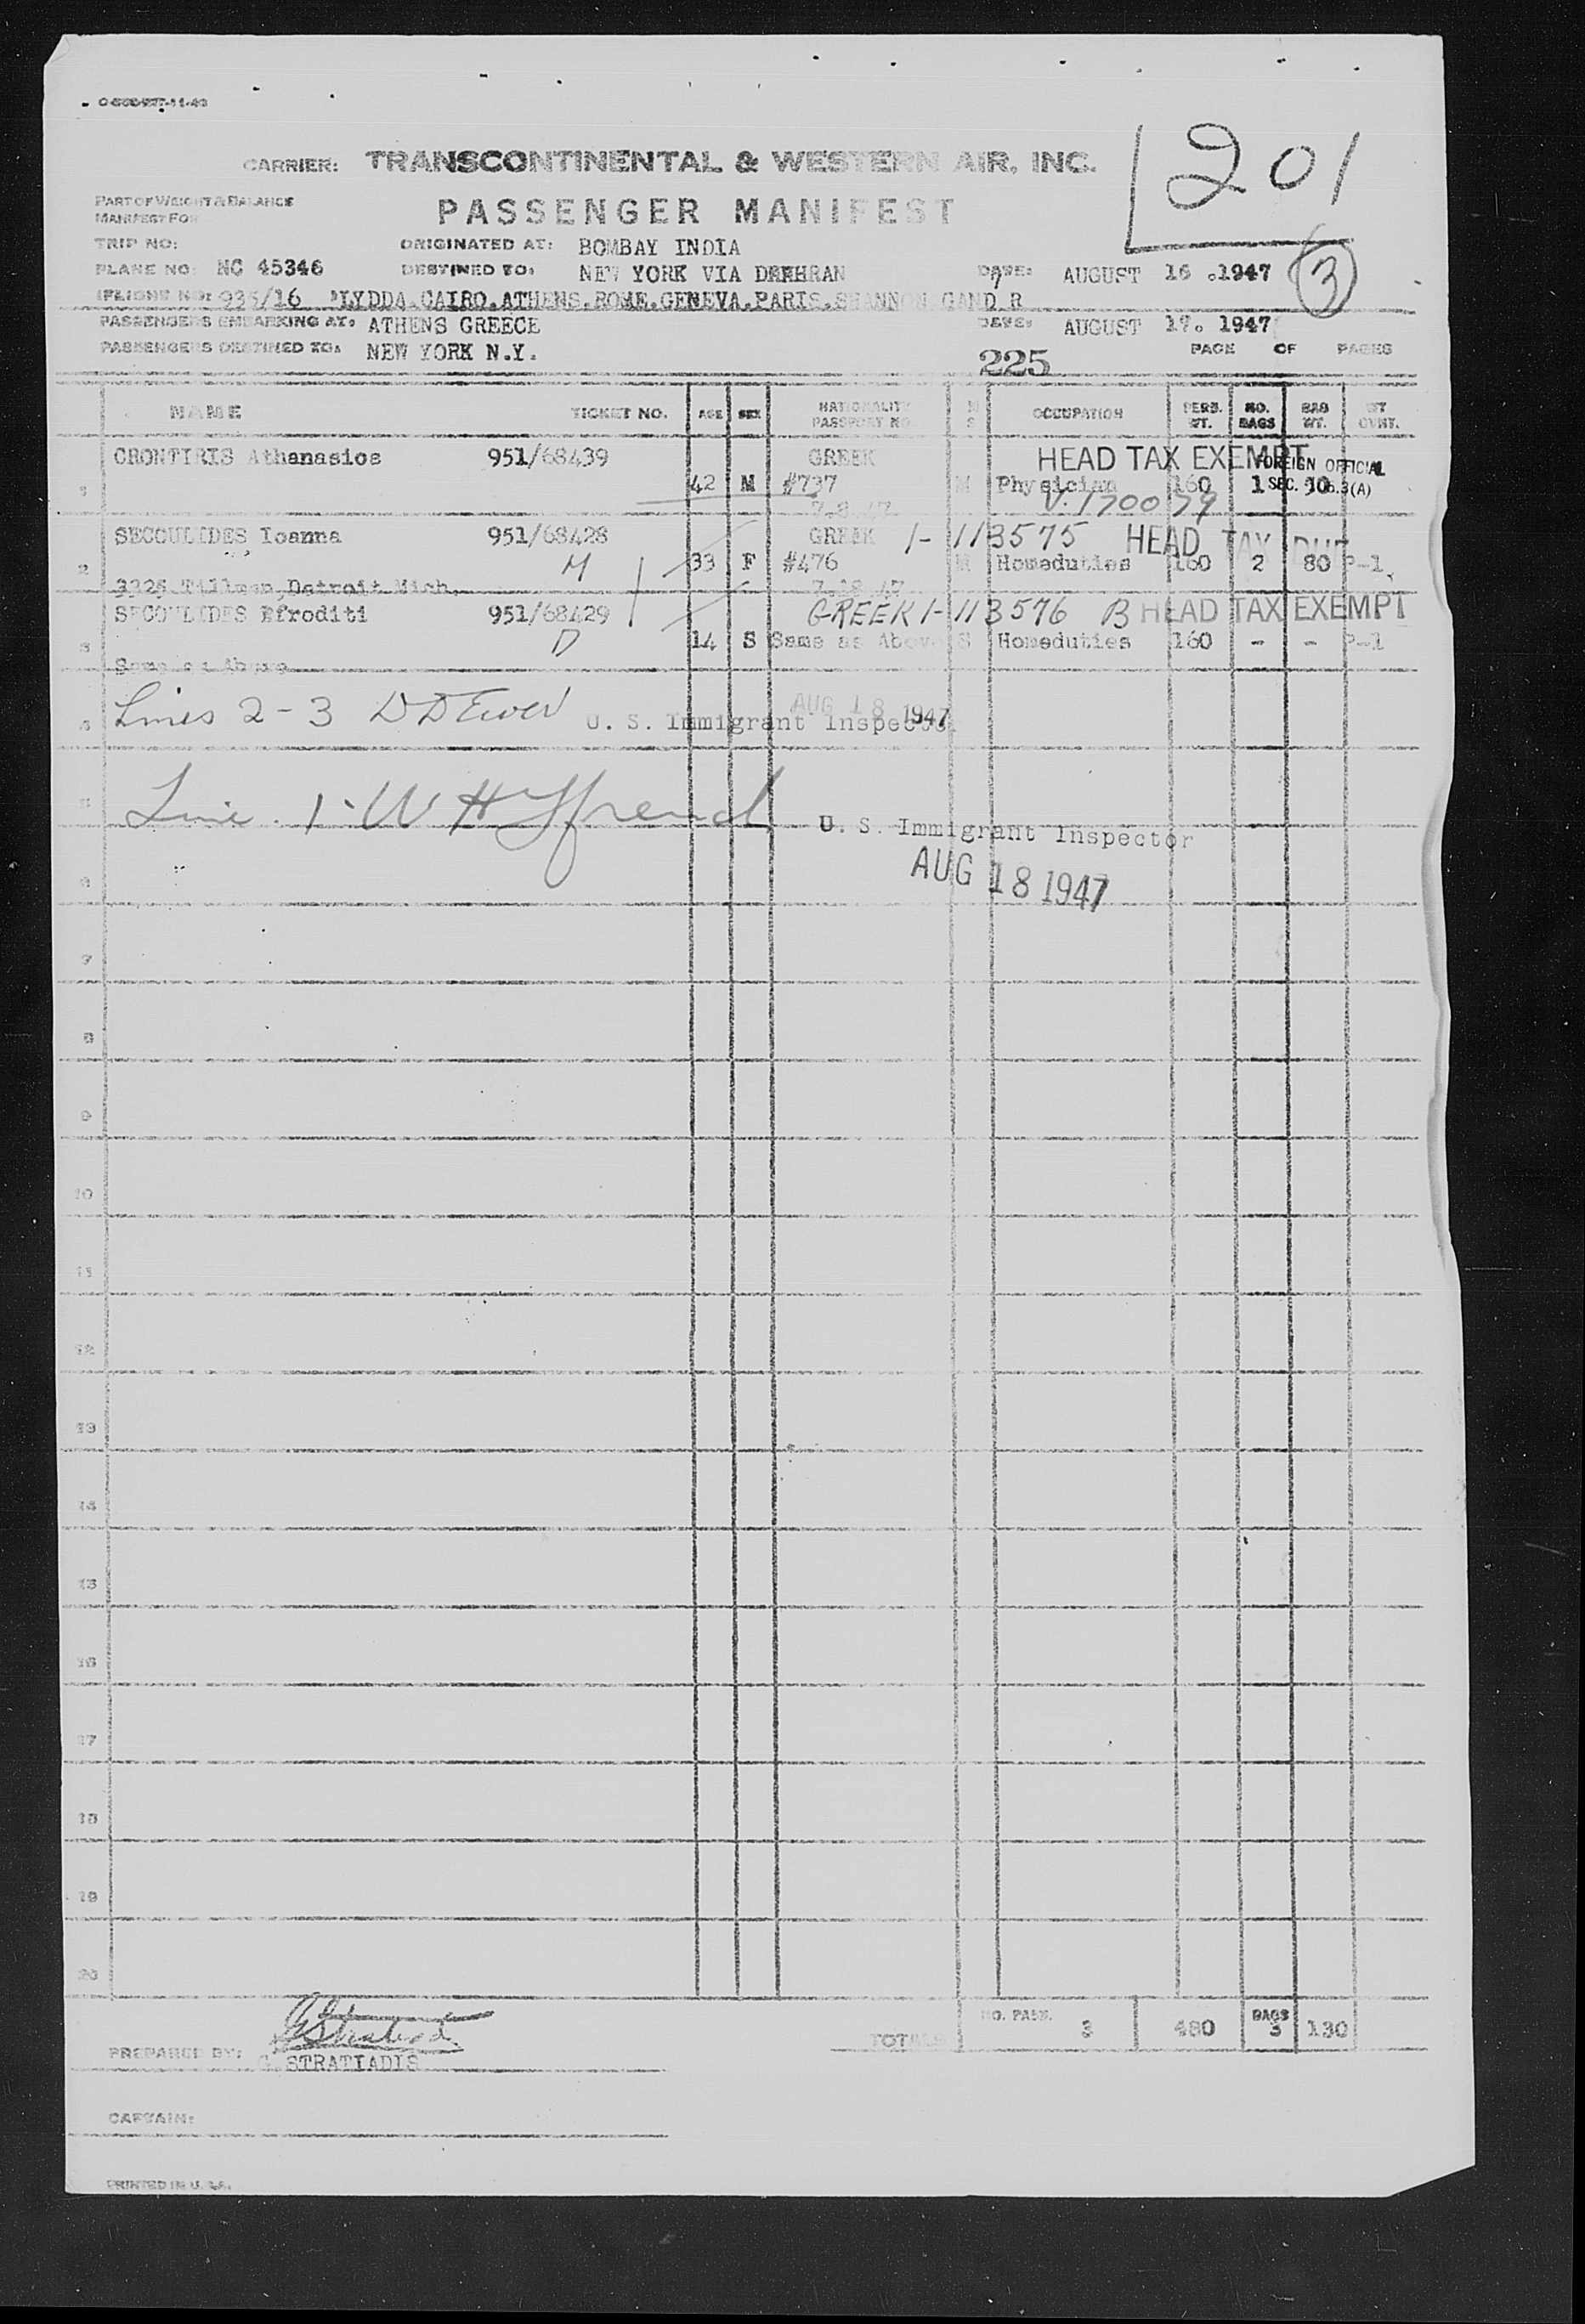 CARRIER: TRANSCONTINENTAL & WESTERN AIR, INC.
201
PART OF WEIGHT & BALANCE
MANIFEST FOR
PASSENGER MANIFEST
TRIP NO: ORIGINATED AT: BOMBAY INDIA
PLANE NO: NC 45346 DESTINED TO: NEW YORK VIA DHEHRAN DATE: AUGUST 16 .1947 3
FLIGHT NO: 935/16 LYDDA.CAIRO.ATHENS.ROME.GENEVA.PARIS.SHANNON GAND R
PASSENGERS EMBARKING AT: ATHENS GREECE DATE: AUGUST 17. 1947
PASSENGERS DESTINED TO: NEW YORK N.Y. 225 PAGE OF PAGES
NAME TICKET NO. AGE SEX NATIONALITY PASSPORT NO. M S OCCUPATION PERS. WT. NO. BAGS BAG WT. WT OVNT.
CRONTIRIS Athanasios 951/68439 GREEK HEAD TAX EXEMPT FOREIGN OFFICIAL
1 42 M #737 M Physician 160 1 SEC. 3(A)
7.8.47 V. 170079
SECOULIDES Ioanna 951/68428 GREEK 1-113575 HEAD TAX DUE
2 M 33 F #476 M Homeduties 160 2 80 P-1
3326 Tillman, Detroit Mich.
SECOULIDES Efroditi 951/68429 GREEK 1-113576 B HEAD TAX EXEMPT
3 D 14 S Same as Above S Homeduties 160 - - P-1
Same as Above
Lines 2-3 U. S. Immigrant Inspector AUG 18 1947
Line 1. U. S. Immigrant Inspector
AUG 18 1947
6
7
8
9
10
11
12
13
14
15
16
17
18
19
20
TOTALS NO. PASS. 3 480 BAGS 3 130
PREPARED BY: G. STRATIADIS
CAPTAIN:
PRINTED IN U.S.A.